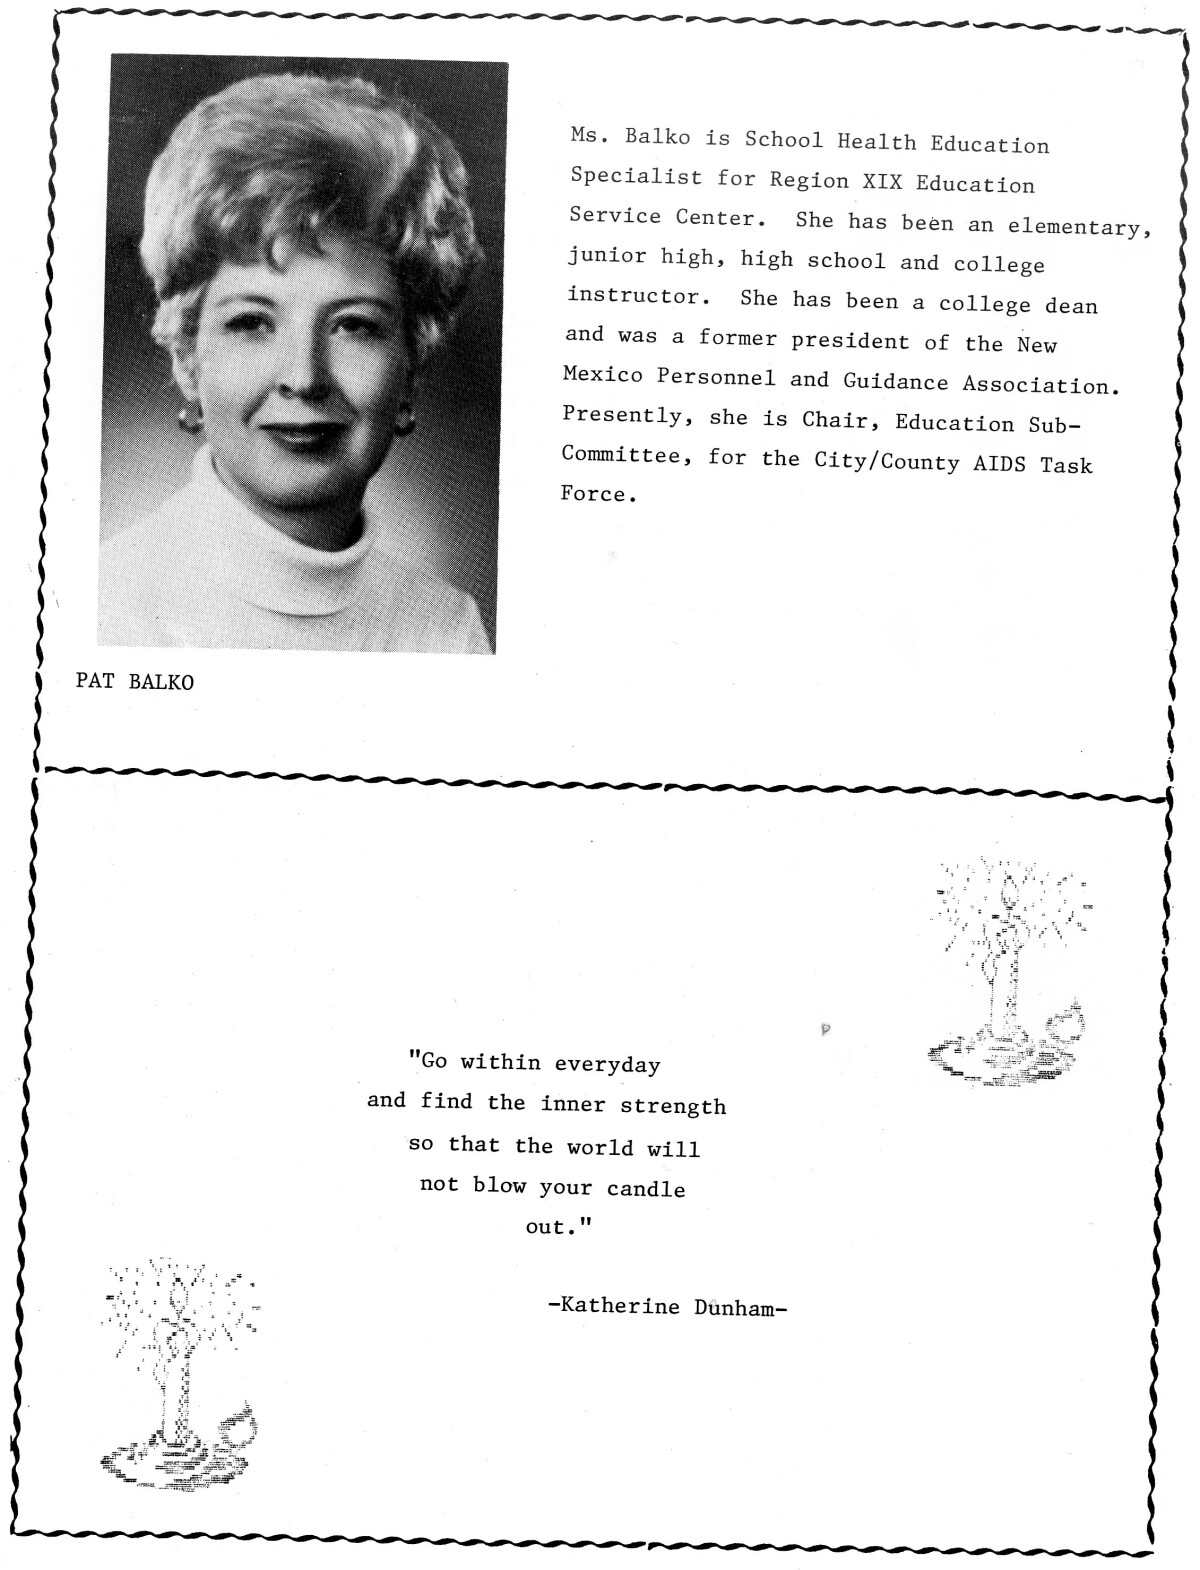 Ms. Balko is School Health Education
Specialist for Region XIX Education
Service Center.  She has been an elementary,
junior high, high school and college
instructor.  She has been a college dean
and was a former president of the New
Mexico Personnel and Guidance Association.
Presently, she is Chair, Education Sub-
Committee, for the City/County AIDS Task
Force.
PAT BALKO
"Go within everyday
and find the inner strength
so that the world will
not blow your candle
out."
-Katherine Dunham-